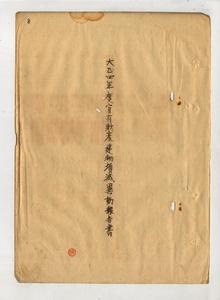 大正四年度官有財産建物増減異動報告書